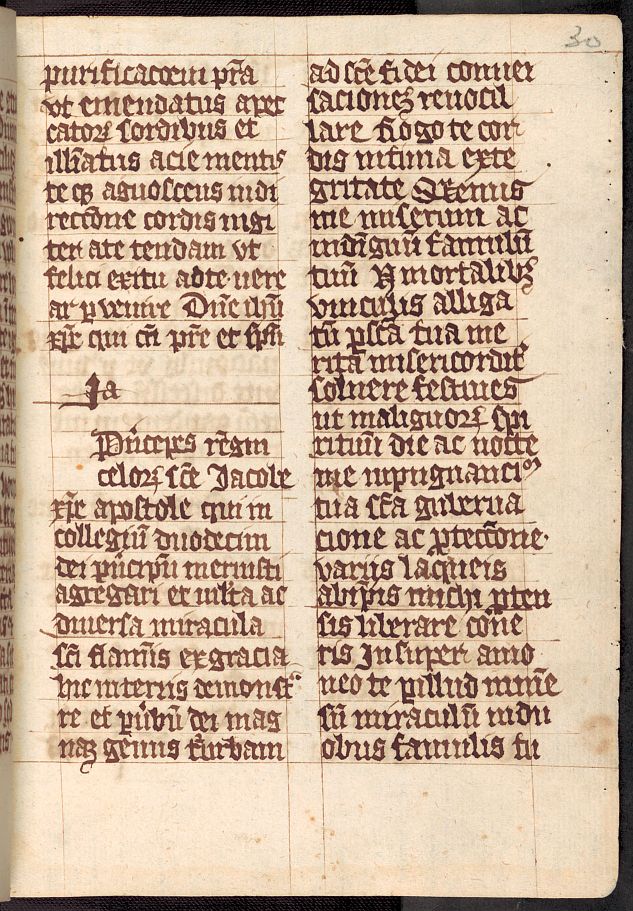 30
purificac̄oem pr̄a
vt emendatus a pec
catoꝝ sordibus et
illūatus acie mentis
te qꝫ agnoscens in di
rectōne cordis iugi
ter ate tendam vt
felici exitu ad te uere
ar ꝑvenire Dn̄e ih̄u
xp̄e qui cū pr̄e et sp̄u
Ja
Prīceps rēgni
celoꝝ sc̄e Jacobe
xp̄e apostole qui in
collegiū duodecim
dei prīcipū meruisti
agregari et ml̄ta ac
diuersa miracula
sc̄i flamīs ex gracia
hic in terris demonst͛
re et prībū dei mag
naꝫ gen̄us turbam
ad sc̄e fidei conuer
sacionēꝫ reuocil
lare Rogo te cor
dis intima exte
gritate Qꝫenus
me miserum ac
indīgnū famulū
tuū N mortalibꝫ
vinculis alliga
tū ꝑ sc̄a tua me
rita misericordit͛
soluere festines
ut malignoꝝ spi
rituū die ac nocte
me inpugnanciū
tua sc̄a guberna
cione ac ꝓtectōne
varijs laqueis
ab ipis michi pten
sis liberare cōne
ris Insuper amo
neo te ꝑ illud īmēn
sū miraculū in du
obus famulis tu